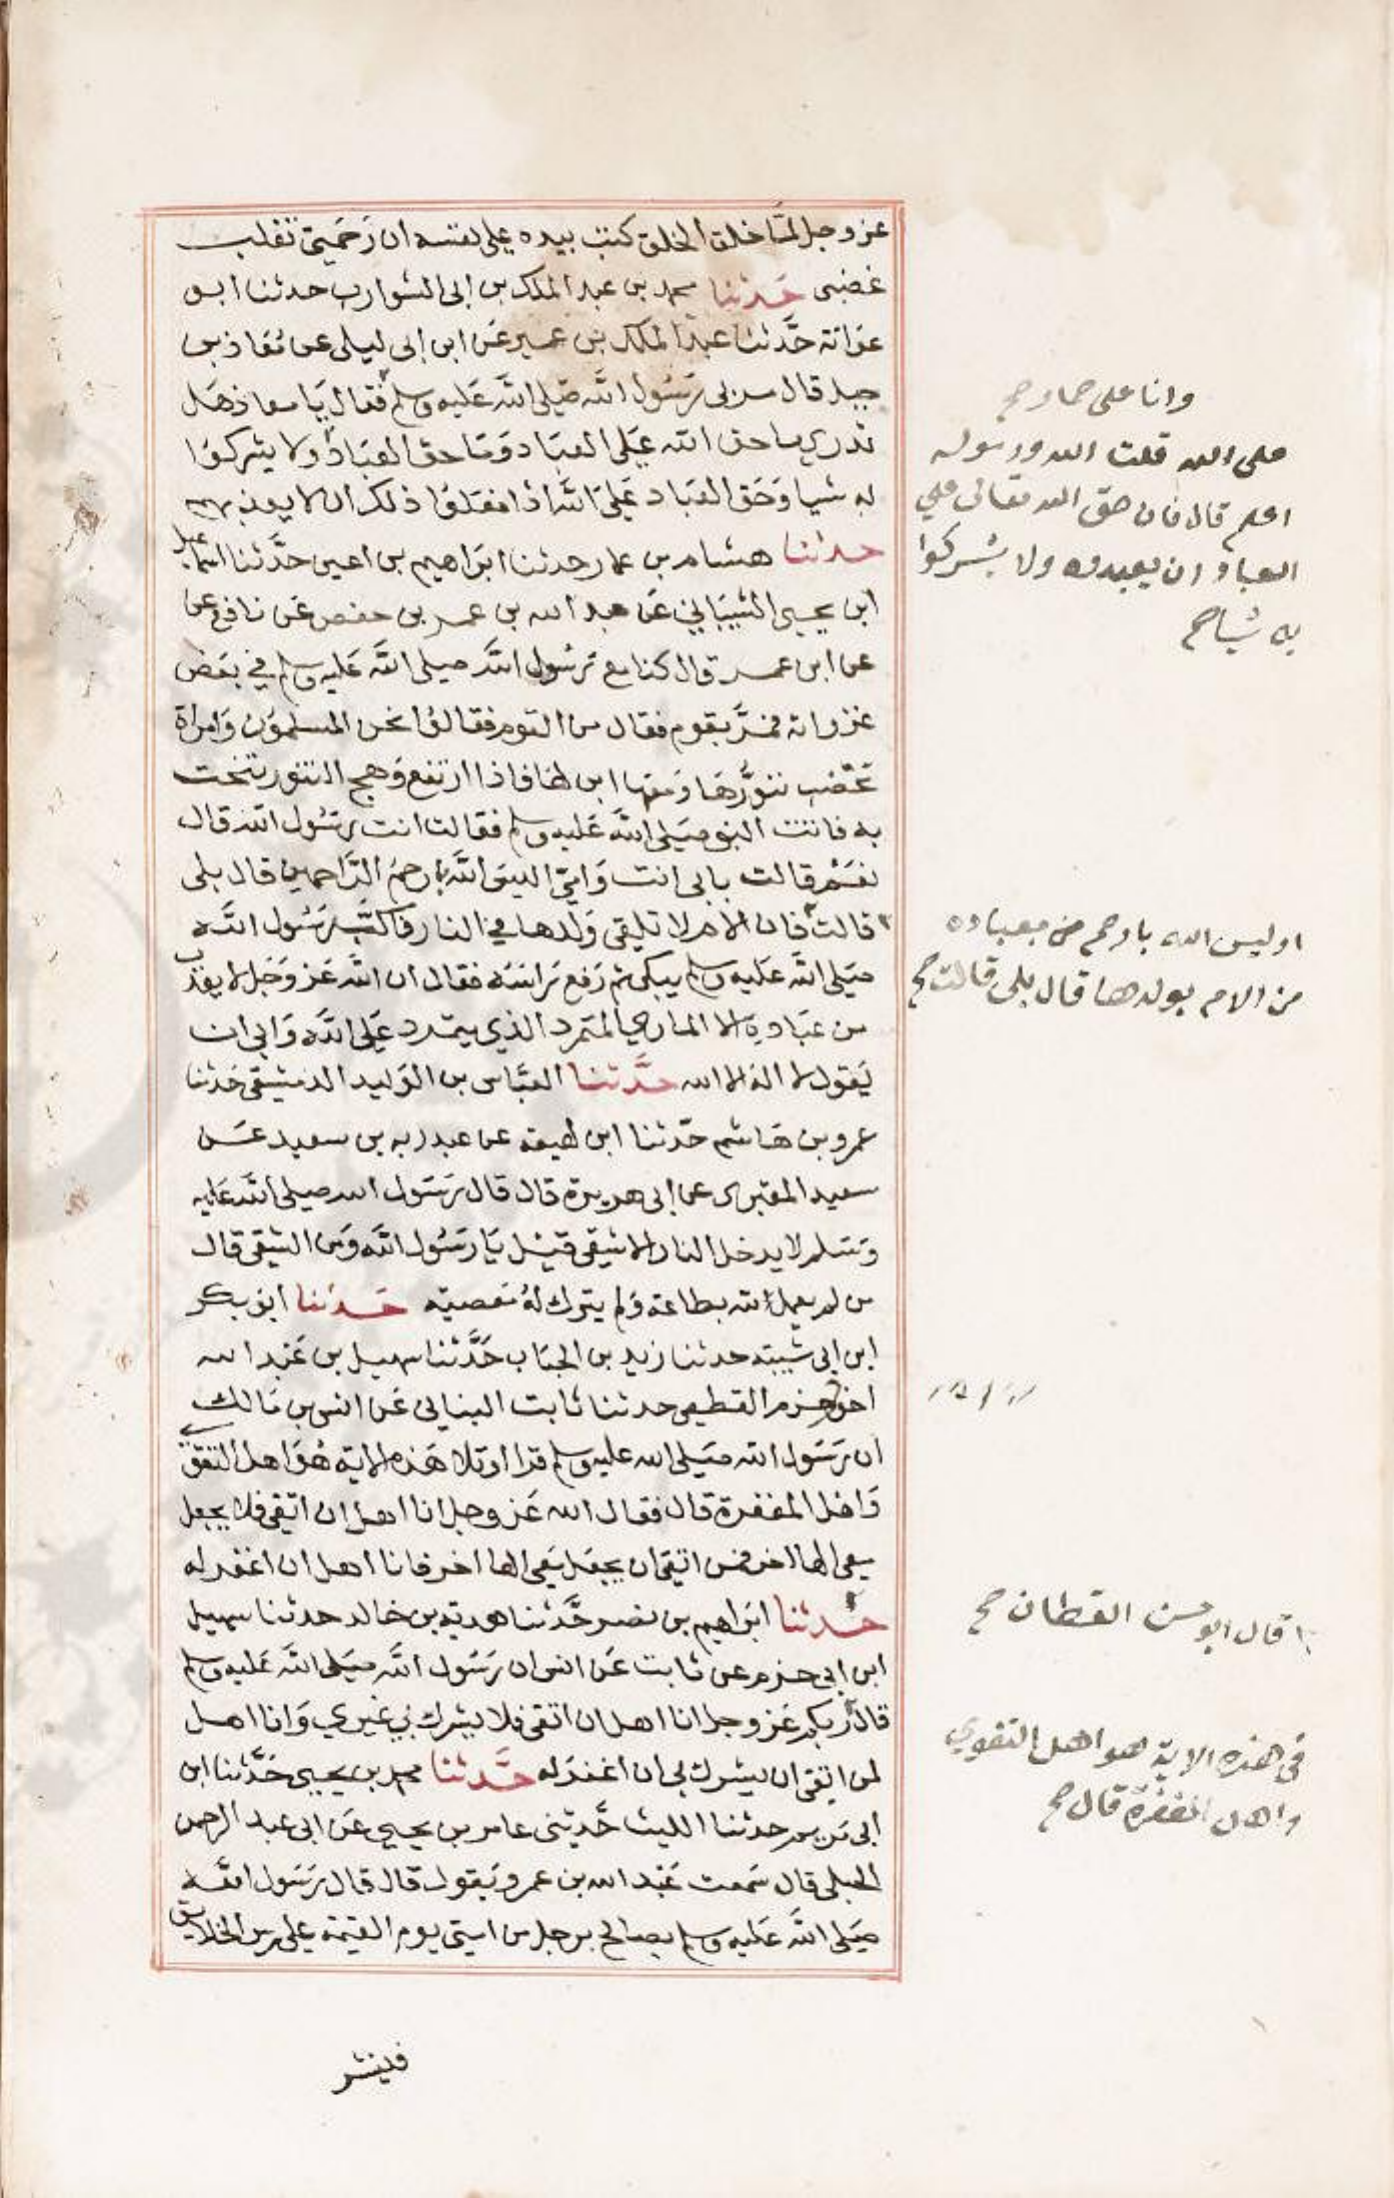 عز وجل لمَّا خلق الخلق كتب بيده على نفسه ان رَحمَتي تغلب
غضبى حَدثنا محمد بن عبد الملك بن ابى الشوارب حدثنا ابو
عوانة حَدَّثنا عبد الملك بن عمير عَن ابن ابى ليلى عن مُعاذ بن
جبل قال مر بى رَسُول الله صَلى الله عَليه وسلم فقال يَا معاذ هَل
تدرى ما حق الله عَلى العبَاد وَمَا حق العبَاد ولا يشركوُا
به شيا وَحَق العبَاد عَلى الله اذا فعَلوُا ذلك ان لا يعذبهم
حدثنا هشام بن عمار حدثنا ابرَاهيم بن اعين حدَّثنا اسماعيل
ابن يحيى الشيبَاني عَن عبد الله بن عمر بن حفص عَن نافع عن
عن ابن عمر قال كنا مع رَسُول الله صلى الله عَليه وسلم في بَعض
غزواته فمرَّ بقوم فقال من القوم فقالوُا نحن المسلموُن وَامراة
تحضب تنوَّرهَا وَمعَها ابن لهَا فاذا ارتفع وَهج التنور تنحت
به فاتت النبى صَلى الله عَليه وسلم فقالت انت رَسُول الله قال
نعَمْ قالت بابى انت وَامّي اليسَ الله بارحم الرَّاحمين قال بلى
قالت فان الام لا تلقى وَلدهَا في النار فاكبَّ رَسُول الله
صَلى الله عَليه وسلم يبكى ثم رَفع رَاسَه فقال ان الله عَز وَجَل لا يعذب
من عبَاده الا المارد المتمرد الذي يتمرد عَلى الله وَابى ان
يَقول لا اله الا الله حدَّثنا العبَّاس بن الوَليد الدمشقى حَدثنا
عمرو بن هَاشم حدّثنا ابن لهيعه عن عبد ربه بن سعيد عَن
سعيد المقبرى عن ابى هريرة قال قال رَسَول الله صلى الله عَليه
وَسَلم لا يدخل النار الا شقى قيْل يَا رسُول الله وَمن الشقى قال
من لم يعمل لله بطاعة وَلم يترك لهُ مَعصية حَدثنا ابو بكر
ابن ابى شيبة حدثنا زيد بن الحبَاب حَدَّثنا سهيل بن عَبد الله
اخو حزم القطيعى حدثنا ثابت البنانى عَن انس بن مَالك
ان رَسَول الله صَلى الله عليه وسلم قرا او تلا هَذه الاية هُوَ اهل التقوى
وَاهل المغفرة قال فقال الله عَز وجل انا اهل ان اتقى فلا يجعل
معى الها اخر فمن اتقى ان يجعَل مَعى الها اخر فانا اهل ان اغفر له
حَدثنا ابرَاهيم بن نصر حَدَّثنا هدبة بن خالد حدثنا سهيل
ابن ابى حزم عن ثابت عَن انس ان رَسُول الله صَلى الله عَليه وسلم
قال ربكم عَز وجل انا اهل ان اتقى فلا يشرك بي غيري وَانا اهل
لمن اتقى ان يشرك بى ان اغفر له حَدَّثنا محمد بن يحيى حَدَّثنا ابن
ابى مَريم حدثنا الليث حَدثنى عامر بن يحيى عَن ابى عبد الرحمن
الحبلى قال سَمعت عَبْد الله بن عمرو يَقول قال قال رَسُول الله
صَلى الله عَليه وسلم يصالح برجل من امتى يوم القيمة على رس الخلايق
فينشر
وانا على حمار صح
على الله قلت الله ورسوله
اعلم قال فان حق الله تعالى على
العباد ان يعبدوه ولا يشركوا
به شيا صح
اوليس الله بارحم من بعباده
من الام بولدها قال بلى قالت صح
قال ابو حسن القطان صح
فى هذه الاية هو اهل التقوي
واهل المغفرة قال صح